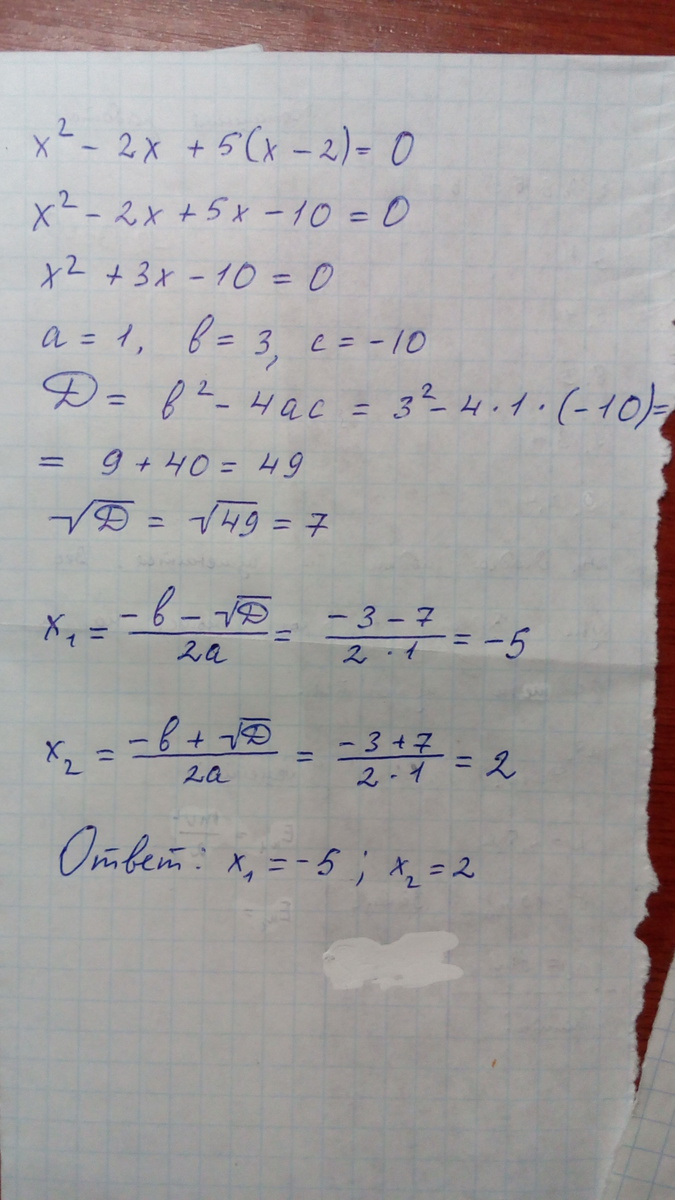 x² - 2x + 5(x - 2) = 0
x² - 2x + 5x - 10 = 0
x² + 3x - 10 = 0
a = 1, b = 3, c = -10
D = b² - 4ac = 3² - 4 · 1 · (-10) =
= 9 + 40 = 49
√D = √49 = 7
x₁ = (-b - √D)/(2a) = (-3 - 7)/(2 · 1) = -5
x₂ = (-b + √D)/(2a) = (-3 + 7)/(2 · 1) = 2
Ответ: x₁ = -5 ; x₂ = 2